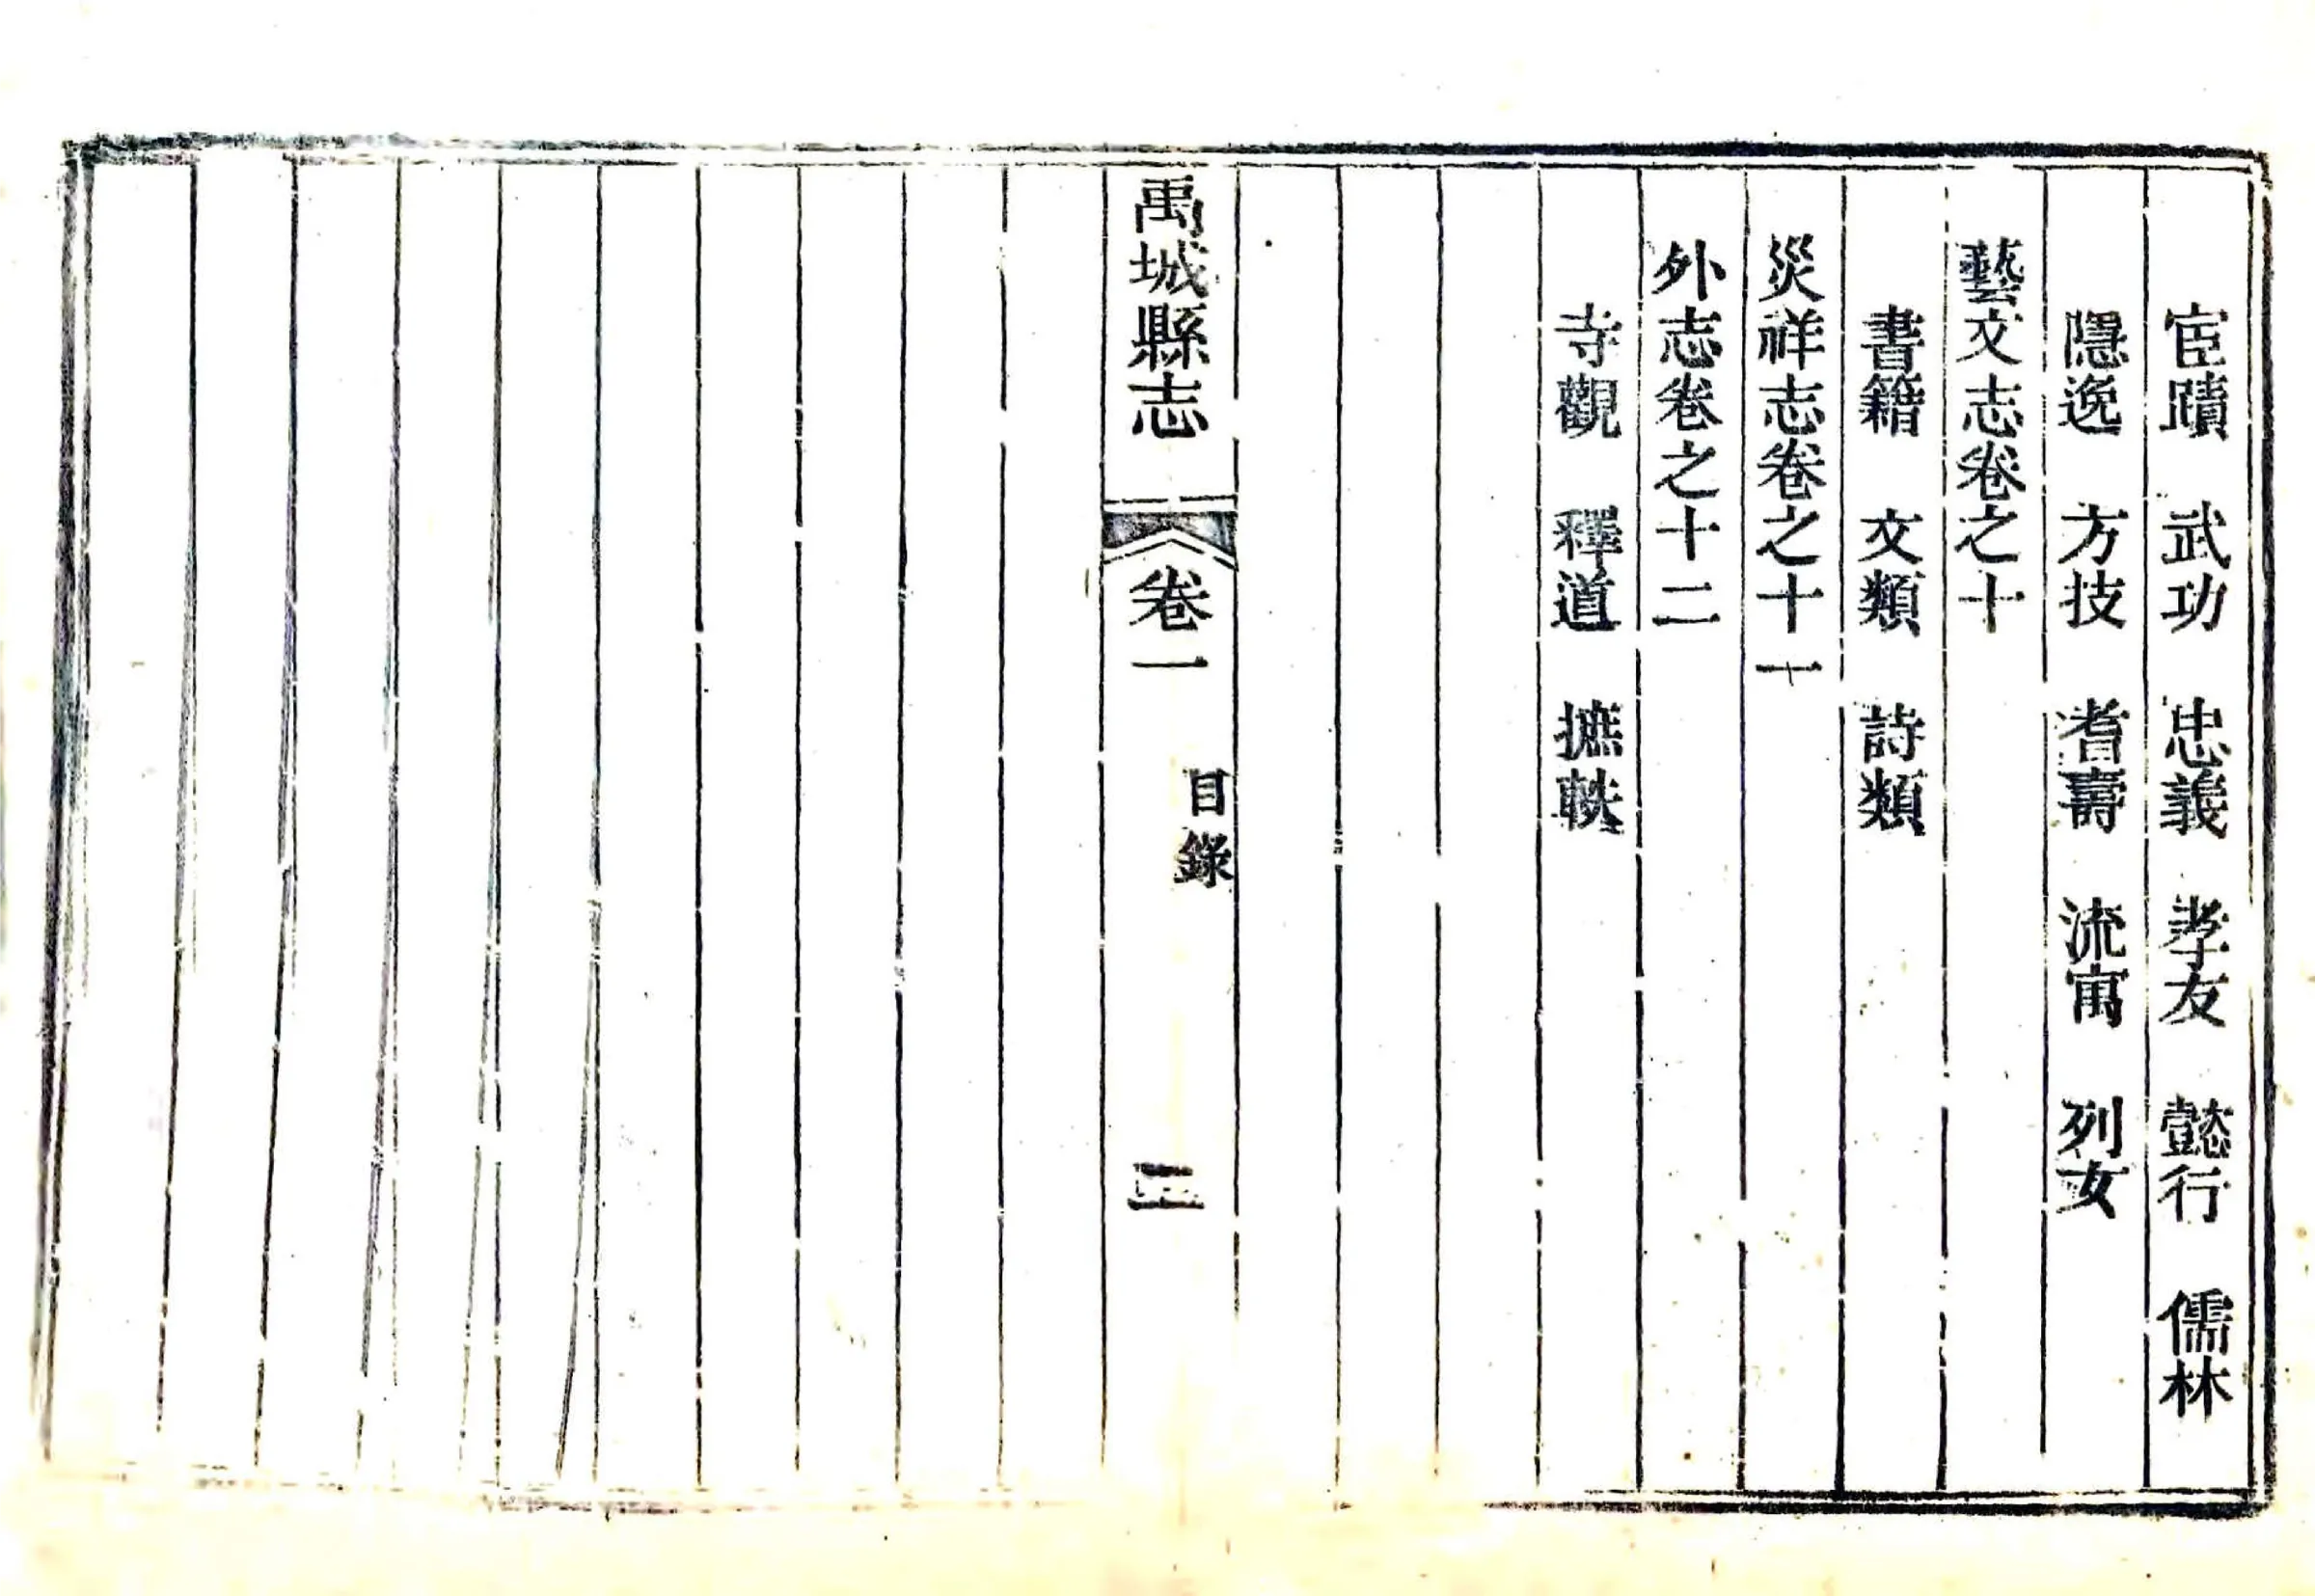 宦蹟　武功　忠義　孝友　懿行　儒林
隱逸　方技　耆壽　流寓　列女
藝文志卷之十
書籍　文類　詩類
災祥志卷之十一
外志卷之十二
寺觀　釋道　摭軼
禹城縣志　卷一　目錄　二